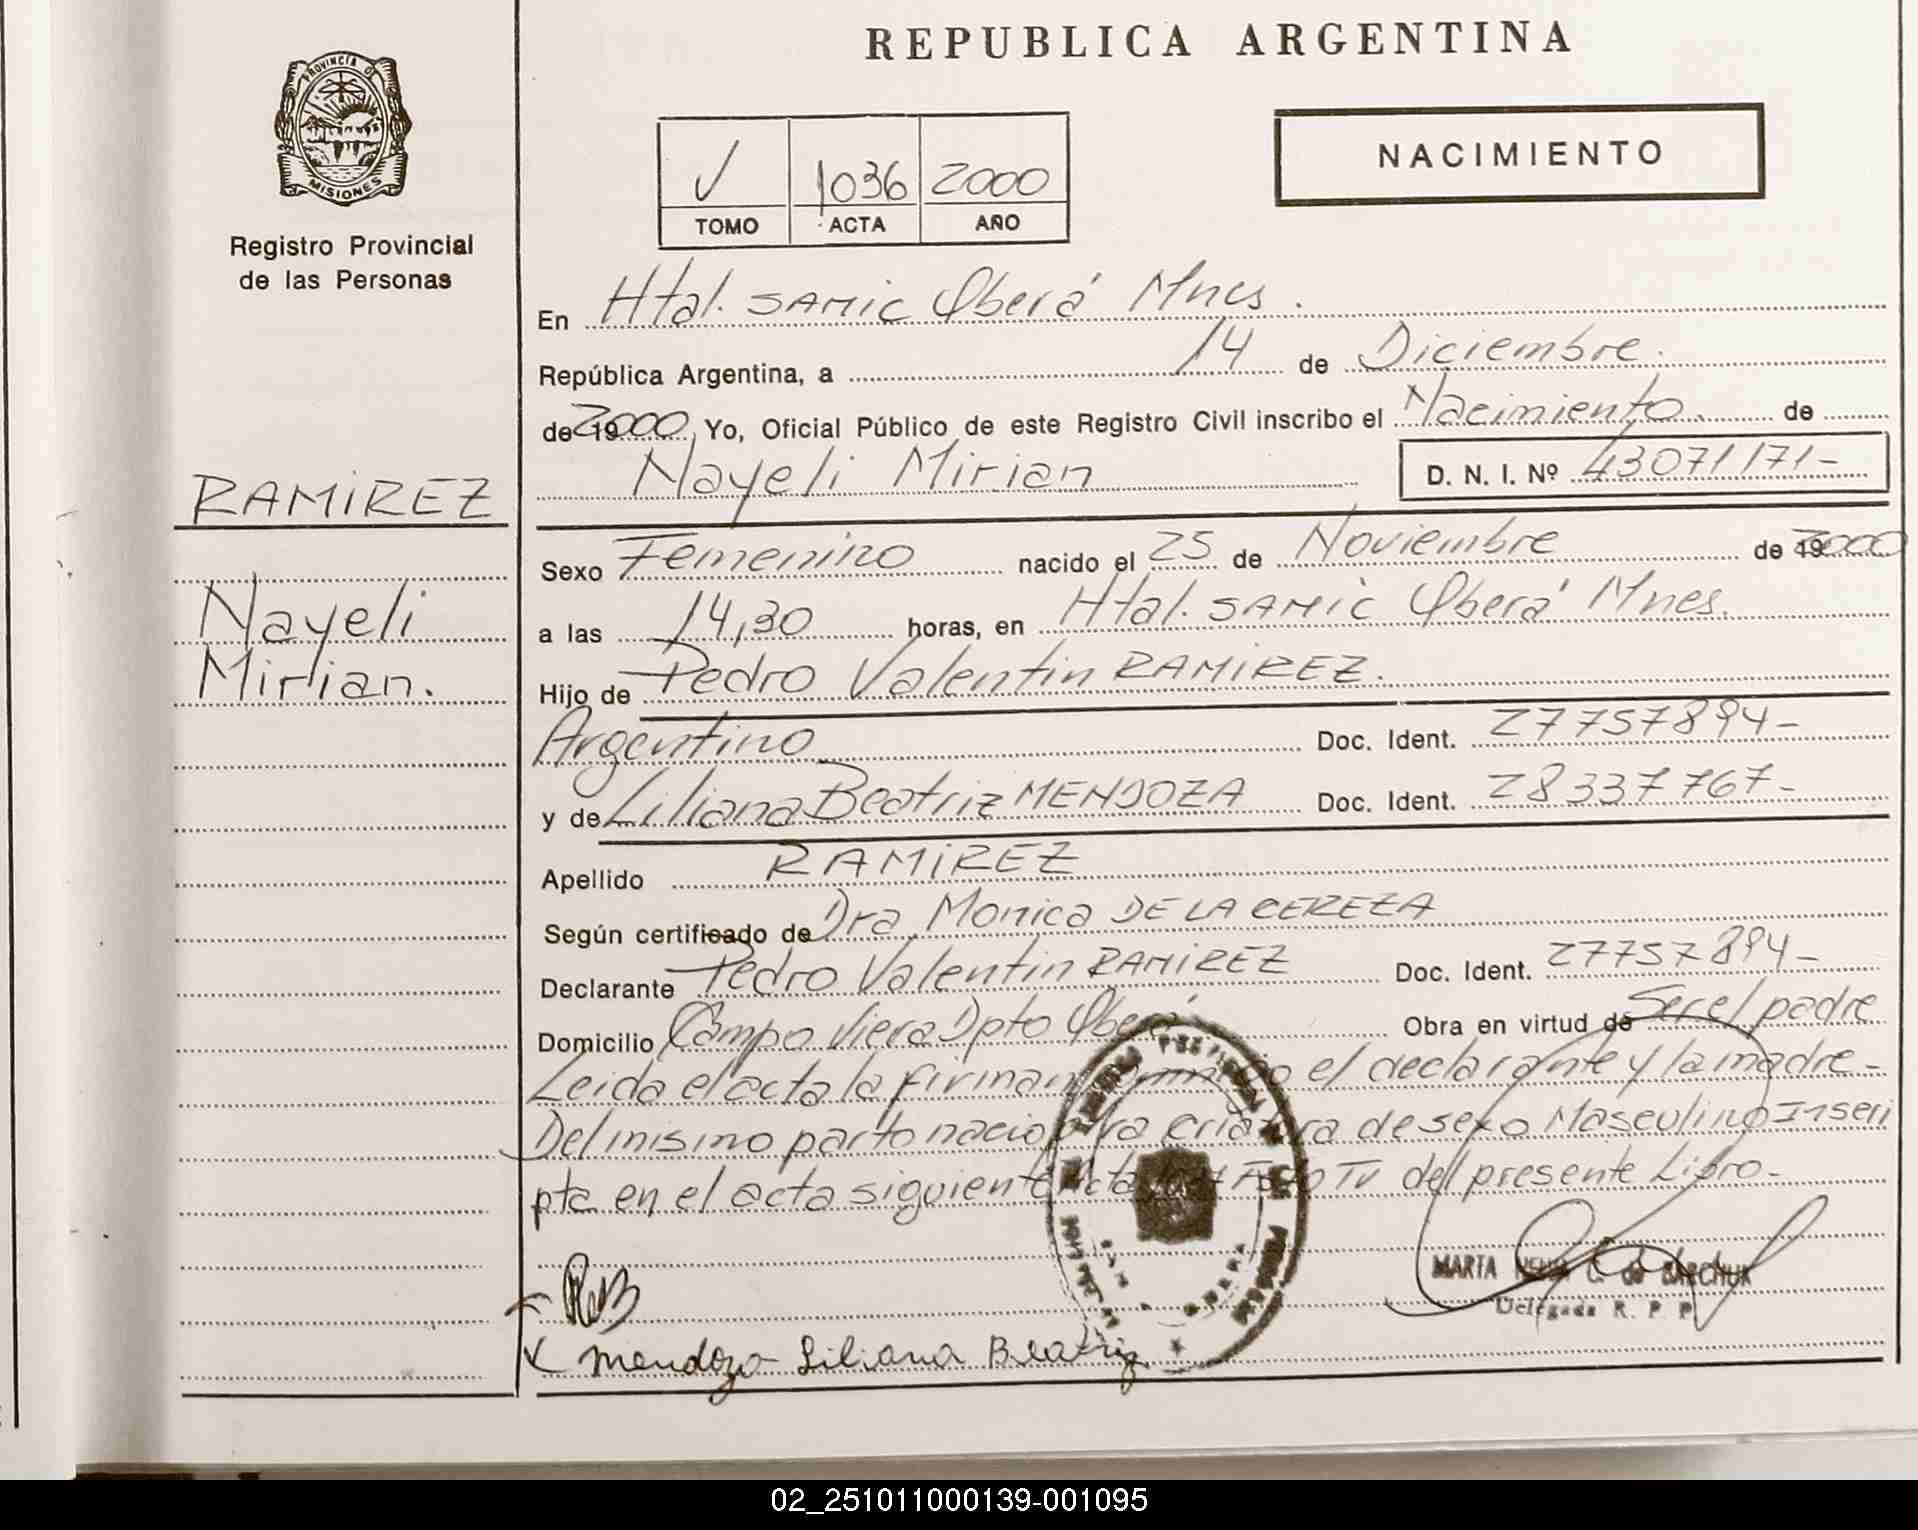 REPUBLICA ARGENTINA
PROVINCIA DE
MISIONES
Registro Provincial
de las Personas
V 1036 2000
TOMO ACTA AÑO
NACIMIENTO
En Htal. SAMIC Oberá Mnes.
República Argentina, a 14 de Diciembre.
de 2000, Yo, Oficial Público de este Registro Civil inscribo el Nacimiento. de
Nayeli Mirian D. N. I. Nº 43071171-
RAMIREZ
Nayeli
Mirian.
Sexo Femenino nacido el 25 de Noviembre de 2000
a las 14,30 horas, en Htal. SAMIC Oberá Mnes.
Hijo de Pedro Valentin RAMIREZ.
Argentino Doc. Ident. 27757894-
y de Liliana Beatriz MENDOZA Doc. Ident. 28337767-
Apellido RAMIREZ
Según certificado de Dra Monica DE LA CEREZA
Declarante Pedro Valentin RAMIREZ Doc. Ident. 27757894-
Domicilio Campo Viera Dpto Oberá Obra en virtud de Ser el padre
Leida el acta la firman conmigo el declarante y la madre-
Del mismo parto nacio otra criatura de sexo Masculino Inscri
pta en el acta siguiente Acta del presente Libro-
MARTA C. de BARCHUK
Delegada R. P. P.
Mendoza Liliana Beatriz
02_251011000139-001095